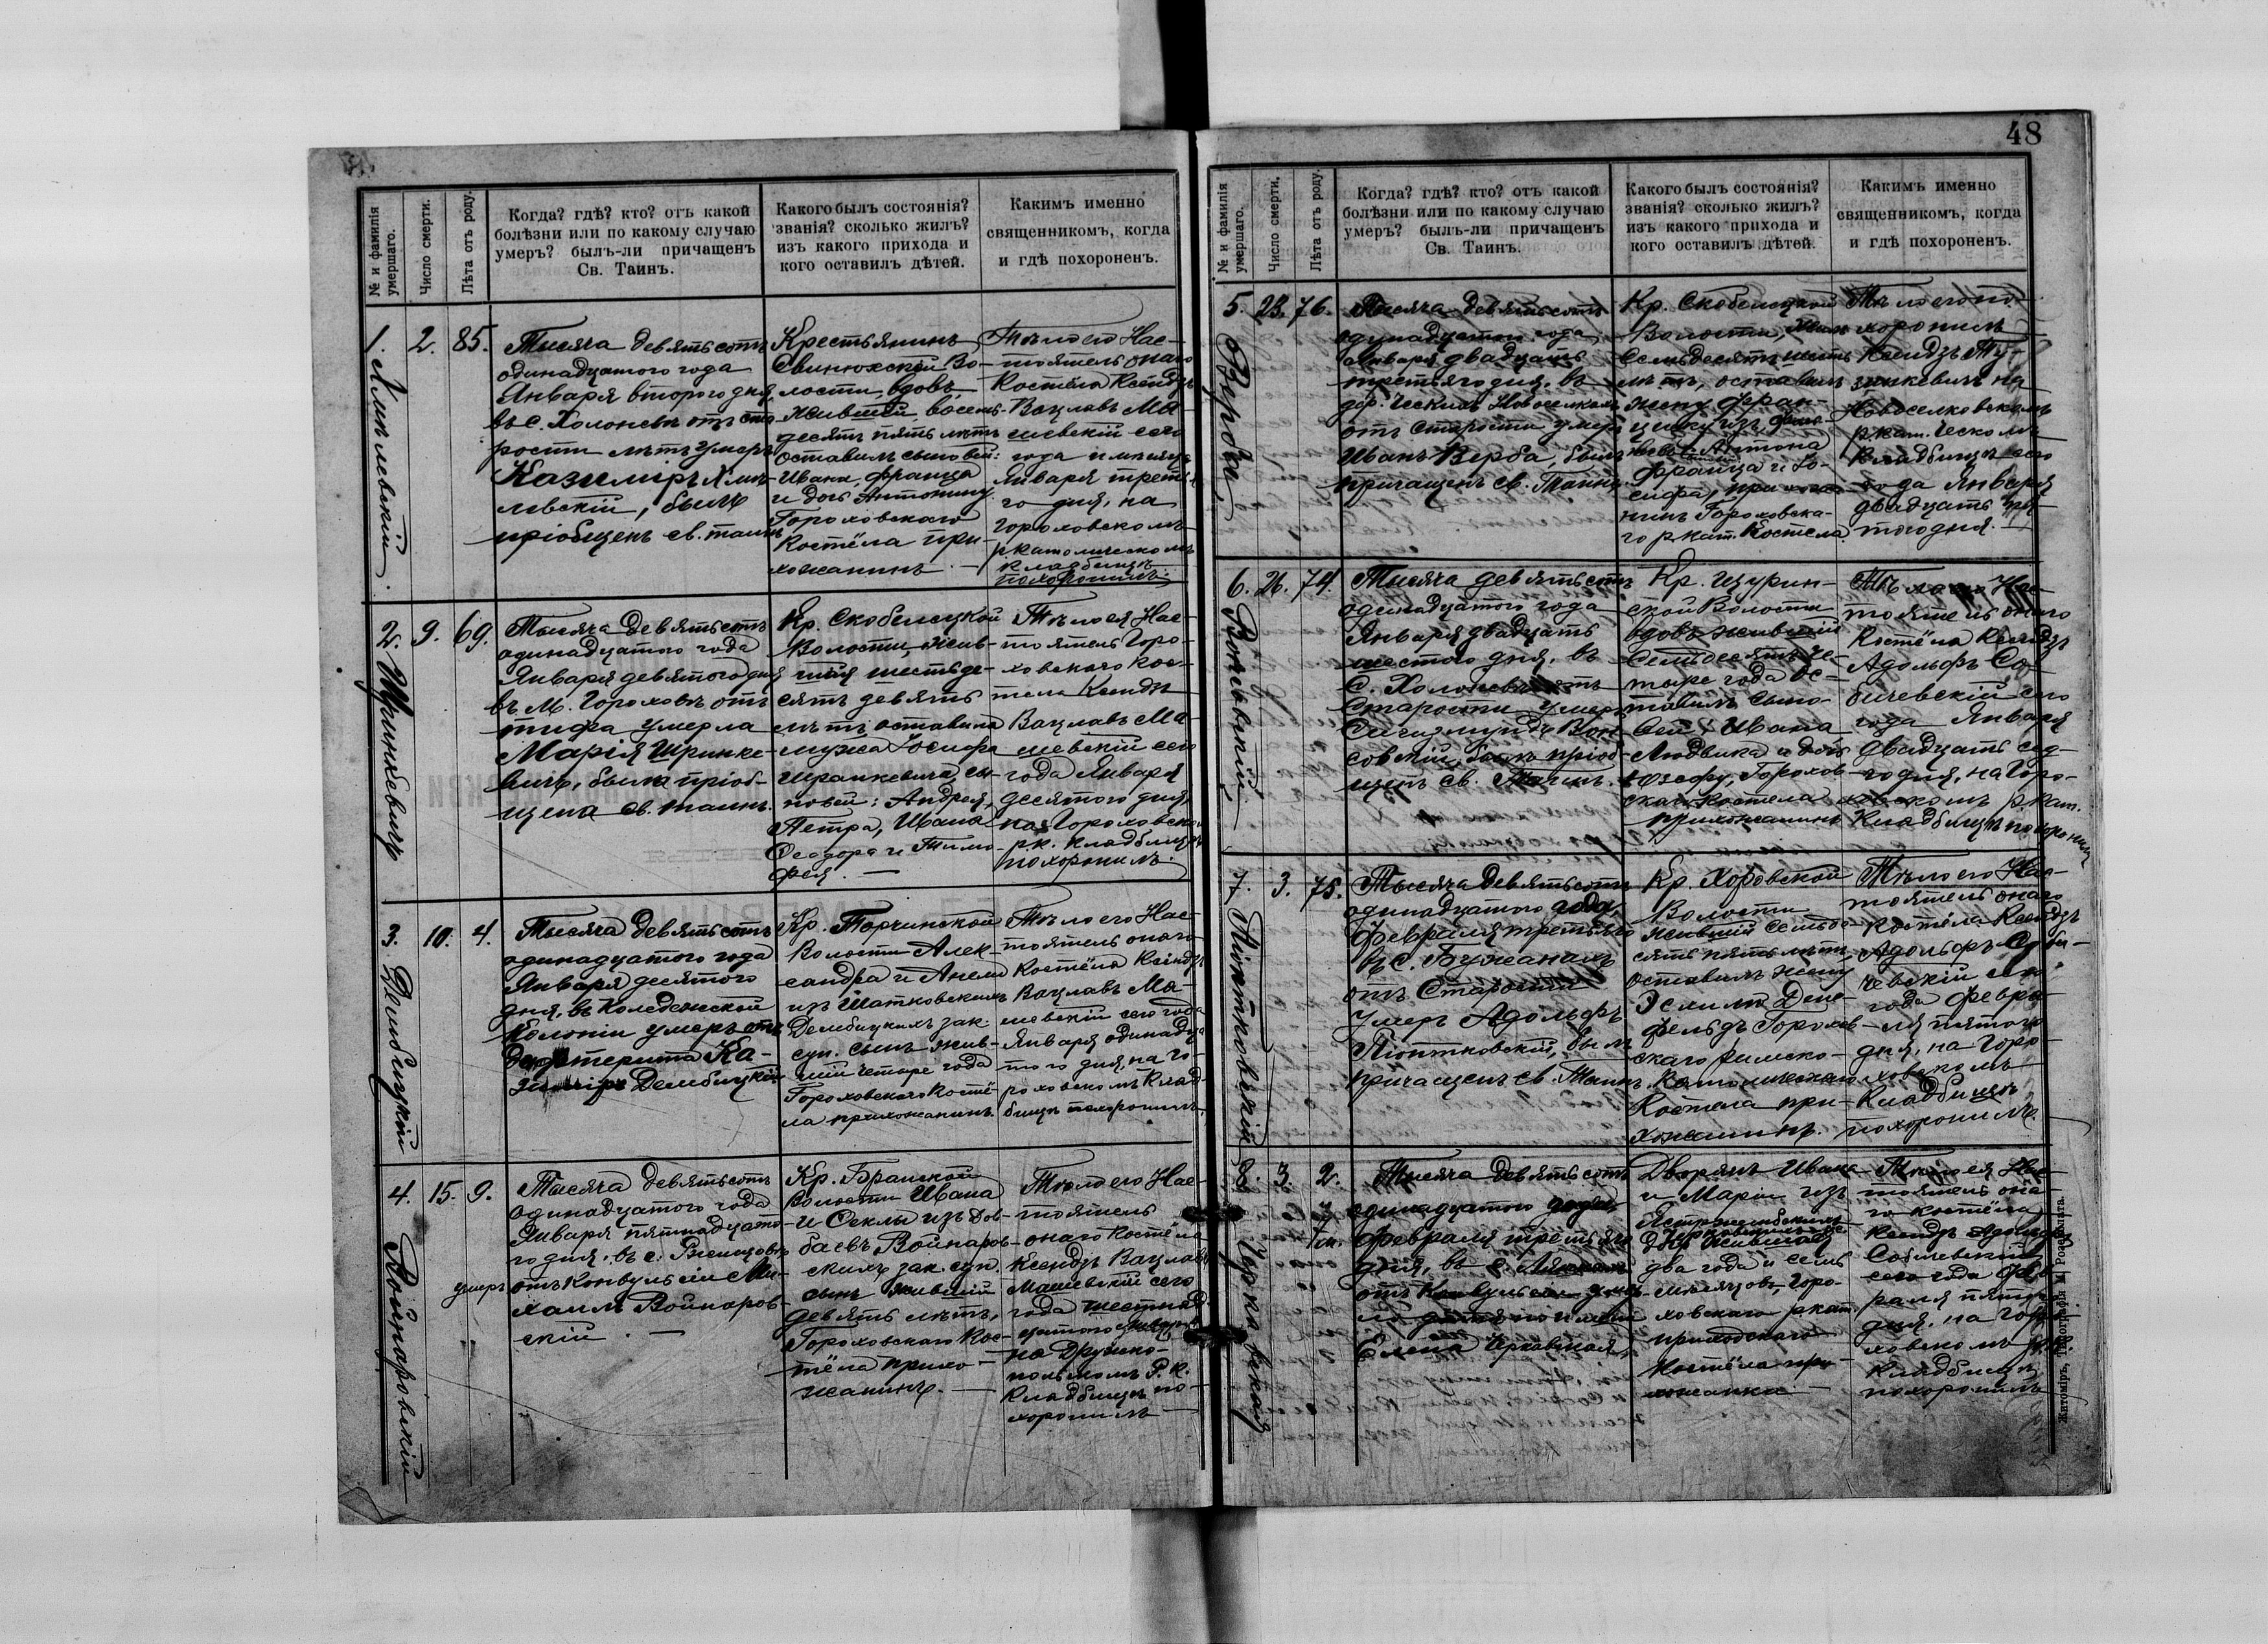 № и фамилія умершаго.
Число смерти.
Лѣта отъ роду.
Когда? гдѣ? кто? отъ какой
болѣзни или по какому случаю
умеръ? былъ-ли причащенъ
Св. Таинъ.
Какого былъ состоянія?
званія? сколько жилъ?
изъ какого прихода и
кого оставилъ дѣтей.
Какимъ именно
священникомъ, когда
и гдѣ похороненъ.
1.
2.
85.
Тысяча девятьсотъ
одинадцатого года
Января второго дня,
въ с. Холоневѣ отъ ста-
рости лѣтъ умеръ
Казиміръ
былъ
пріобщенъ св. таинъ
Крестьянинъ
Свинюхской Во-
лости, вдовъ,
жившій восемь-
десятъ пять лѣтъ
оставилъ сыновей:
Ивана, Франца
и дочь Антонину
Гороховскаго
Костёла при-
хожанинъ. —
Тѣло его Нас-
тоятель онаго
Костёла Ксендзъ
Вацлавъ Ма-
шевскій сего
года и мѣсяца
Января третья-
го дня, на
Гороховскомъ
р католическомъ
кладбищѣ
похоронилъ.
2. Шринкевичъ
9.
69.
Тысяча девятьсотъ
одинадцатого года
Января девятого дня
въ М. Гороховѣ отъ
тифа умерла
Марія Шринке-
вичъ, была пріоб-
щена св. таинъ.
Кр. Скобелецкой
Волости жив-
шая шестьде-
сятъ девять
лѣтъ оставила
мужа Іосифа
Шринкевича, сы-
новей: Андрея,
Петра, Ивана
Ѳеодора и Тимо-
фея. —
Тѣло ея Нас-
тоятель Горо-
ховскаго Кос-
тела Ксендзъ
Вацлавъ Ма-
шевскій сего
года Января
десятого дня,
на Гороховском
р.к. кладбищѣ
похоронилъ.
3. Дембицкій
10.
4.
Тысяча девятьсотъ
одинадцатого года
Января десятого
дня, въ
Колоніи умеръ отъ
дефтерита Ка-
зиміръ Дембицкій
Кр. Торчинской
Волости Алек-
сандра и Анели
изъ Шатковскихъ
Дембицкихъ зак.
суп. сынъ жив-
шій четыре года
Гороховскаго Костё-
ла прихожанинъ.
Тѣло его Нас-
тоятель онаго
Костёла Ксендзъ
Вацлавъ Ма-
шевскій сего года
Января одинадца-
того дня, на Го-
роховскомъ клад-
бищѣ похоронилъ.
4. Войнаровскій
15.
9.
Тысяча девятьсотъ
одинадцатого года
Января пятнадцато-
го дня, въ с.
умеръ отъ конвульсіи Ми-
хаилъ Войнаров-
скій. —
Кр. Бранской
Волости Ивана
и Ѳеклы изъ Дов-
баевъ Войнаров-
скихъ зак. суп.
сынъ живший
девять лѣтъ,
Гороховскаго Кос-
тёла прихо-
жанинъ. —
Тѣло его Нас-
тоятель
онаго Костёла
Ксендзъ Вацлавъ
Машевскій сего
года шестнад-
цатого Января
на Дружко-
польномъ Р. К.
Кладбищѣ по-
хоронилъ —
48
№ и фамилія умершаго.
Число смерти.
Лѣта отъ роду.
Когда? гдѣ? кто? отъ какой
болѣзни или по какому случаю
умеръ? былъ-ли причащенъ
Св. Таинъ.
Какого былъ состоянія?
званія? сколько жилъ?
изъ какого прихода и
кого оставилъ дѣтей.
Какимъ именно
священникомъ, когда
и гдѣ похороненъ.
5. Верба
23.
76.
Тысяча девятьсотъ
одинадцатого года
Января двадцать
третьяго дня, въ
дер. Ческихъ Новоселкахъ
отъ старости умеръ
Иванъ Верба, былъ
причащенъ св. Таинъ.
Кр. Скобелецкой
Волости, жилъ
семьдесятъ шесть
лѣтъ, оставилъ
жену Фран-
цишку изъ
Антона
Франца и Іо-
сифа, прихожа-
нинъ Гороховска-
го р кат. Костела
Тѣло его по-
хоронилъ
Ксендзъ
на
Новоселковскомъ
р.кат. Ческомъ
Кладбищѣ сего
года Января
двадцать
того дня. —
6. Вонсовскій
26.
74.
Тысяча девятьсотъ
одинадцатого года
Января двадцать
шестого дня, въ
с. Холоневѣ отъ
старости умеръ
Сигизмундъ Вон-
совскій, былъ пріоб-
щенъ св. Таинъ.
Кр. Щурин-
ской Волости
вдовъ живший
семьдесятъ че-
тыре года ос-
тавилъ сыно-
вей: Ивана
Людвика и дочь
Юзефу, Горохов-
скаго костела
прихожанинъ
Тѣло его Нас-
тоятель онаго
Костёла Ксендзъ
Адольфъ Со-
бичевскій сего
года Января
двадцать сед-
го дня, на Горо-
ховскомъ р.кат.
Кладбищѣ похоронилъ
7. Піонтковскій
3.
75.
Тысяча девятьсотъ
одинадцатого года,
Февраля третьяго
въ с. Бужанахъ
отъ Старости
Умеръ Адольфъ
Піонтковскій, былъ
причащенъ св. Таинъ.
Кр. Хоровской
Волости
живший семьде-
сятъ пять лѣтъ
оставилъ жену
Горохов-
скаго Римско-
Католическаго
Костела при-
хожанинъ.
Тѣло его Нас-
тоятель онаго
Костёла Ксендзъ
Адольфъ Соби-
чевскій сего
года Февра-
ля пятого
дня, на Горо-
ховскомъ
Кладбищѣ
похоронилъ.
8. Церковская
3.
2.
7 м.
Тысяча девятьсотъ
одинадцатого года,
Февраля третьяго
дня, въ с.
отъ Конвульсіи
Елена Церковская,
Дворянъ Ивана
и Маріи изъ
Церковскихъ
два года и семь
мѣсяцовъ, Горо-
ховскаго р кат.
приходскаго
Костёла при-
хожанка —
Тѣло ея Нас-
тоятель она-
го костёла
Ксендзъ Адольфъ
Собичевскій
сего года Фев-
раля пятого
дня, на Горо-
ховскомъ р.к.
Кладбищѣ
похоронилъ
Житоміръ, Типографія М. Розенблата.